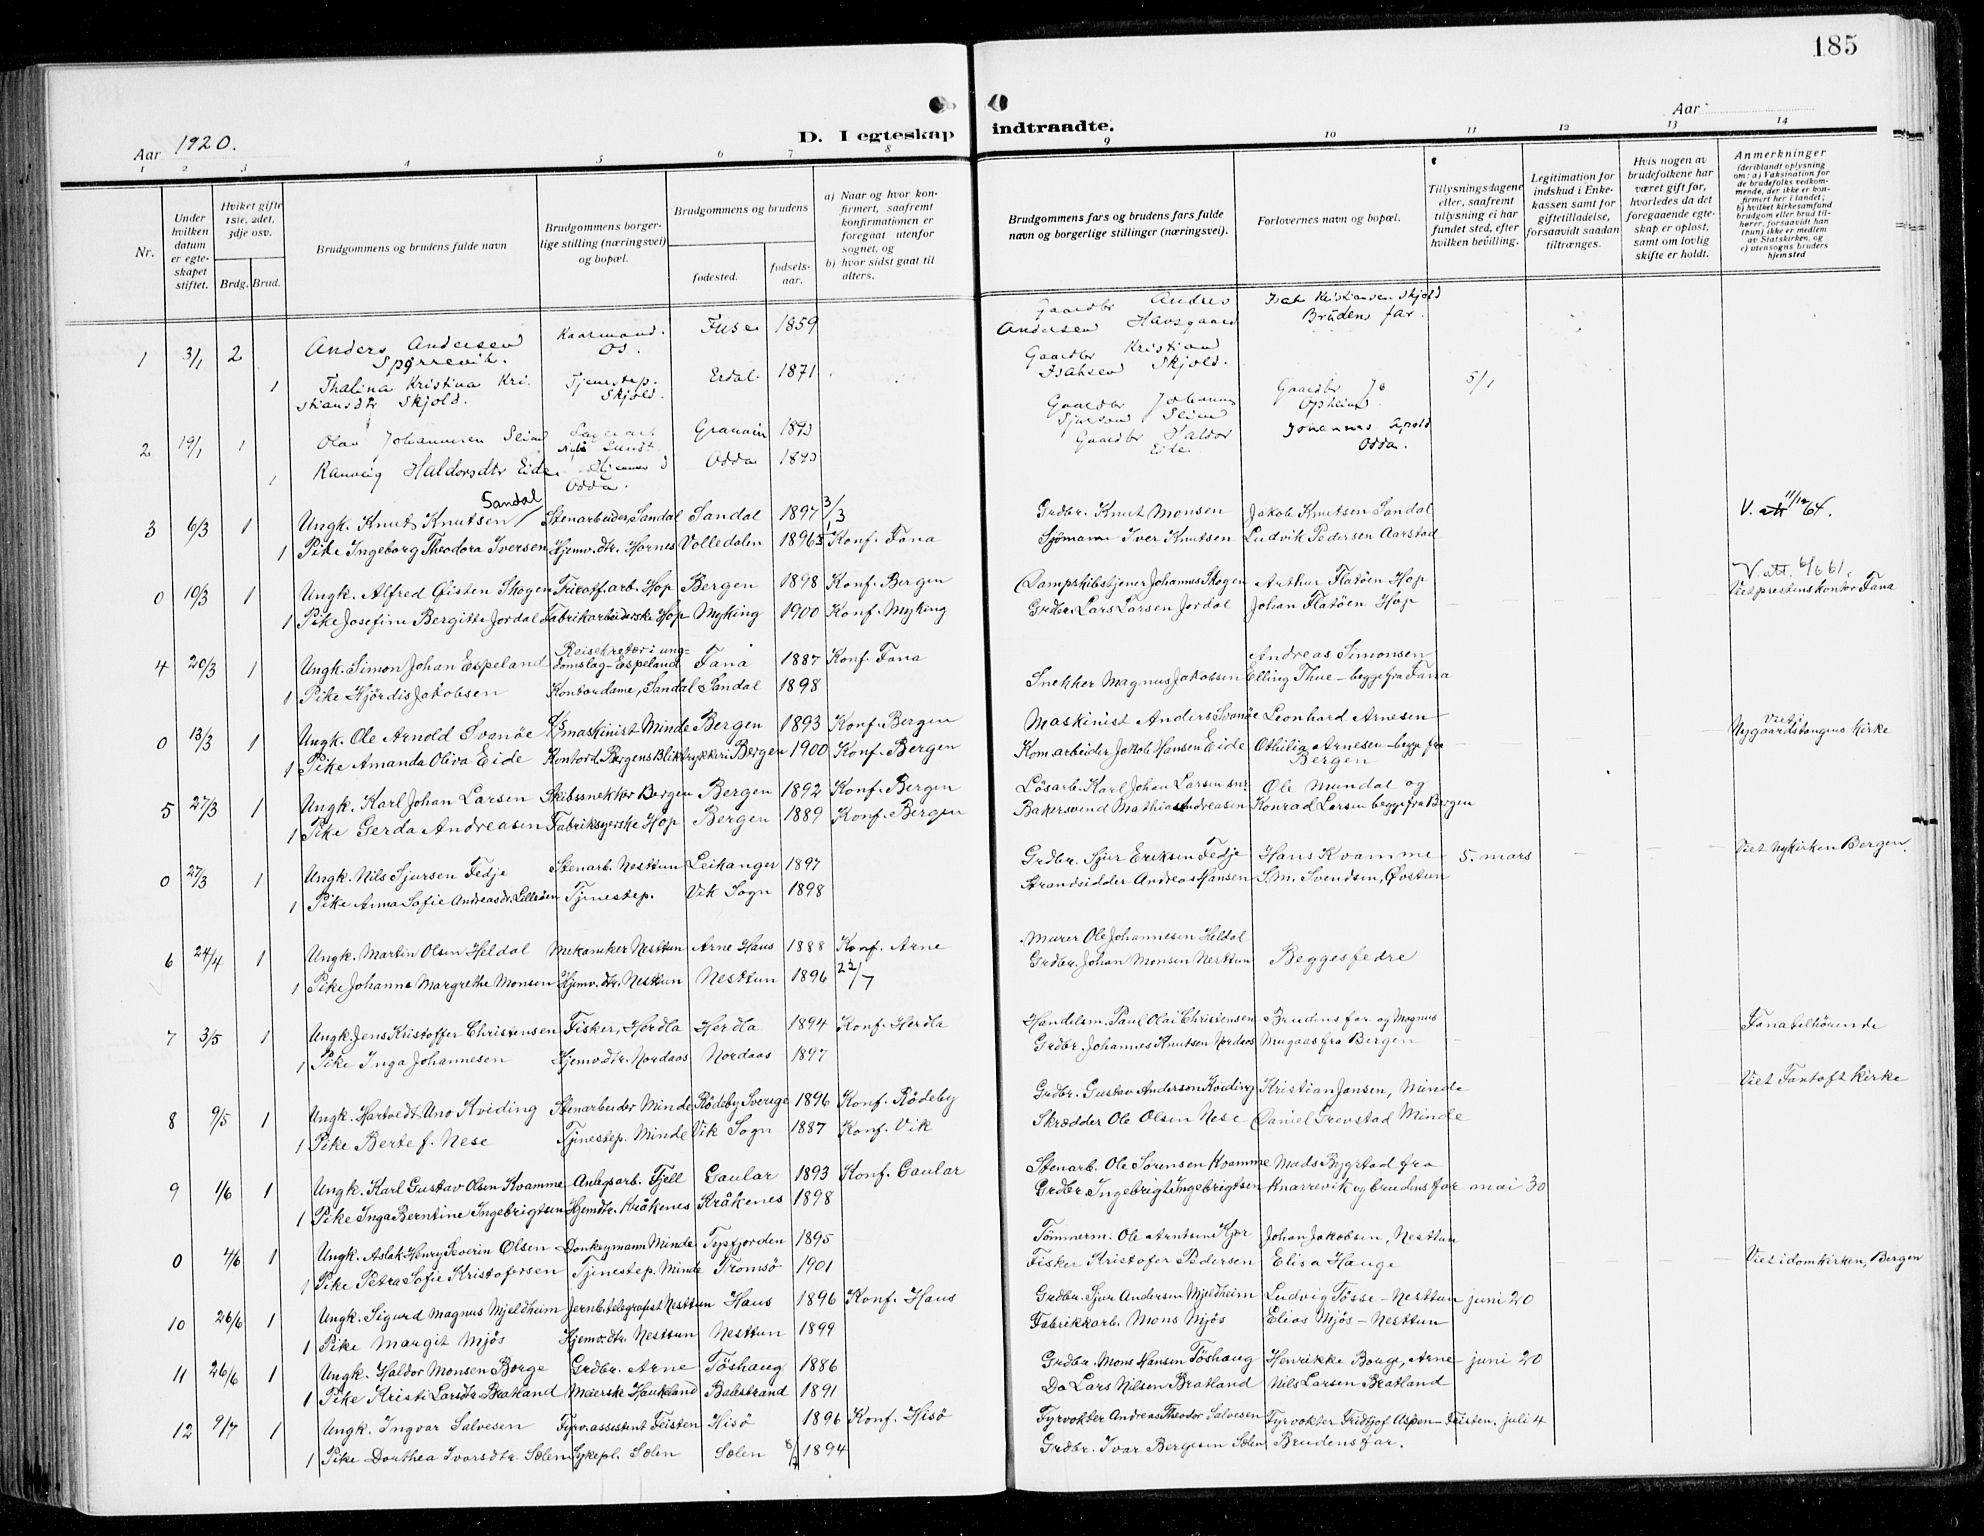 185
Aar 1920.
D. I egteskap indtraadte.
Aar
1 2 3 4 5 6 7 8 9 10 11 12 13 14
Nr.
Under hvilken datum er egteskapet stiftet.
Hviket gifte 1ste, 2det, 3dje osv.
Brdg. Brud.
Brudgommens og brudens fulde navn
Brudgommens borgerlige stilling (næringsvei) og bopæl.
Brudgommens og brudens
fødested.
fødselsaar.
a) Naar og hvor konfirmert, saafremt konfirmationen er foregaat utenfor sognet, og
b) hvor sidst gaat til alters.
Brudgommens fars og brudens fars fulde navn og borgerlige stillinger (næringsvei).
Forlovernes navn og bopæl.
Tillysningsdagene eller, saafremt tillysning ei har fundet sted, efter hvilken bevilling.
Legitimation for indskud i Enkekassen samt for giftetilladelse, forsaavidt saadan tiltrænges.
Hvis nogen av brudefolkene har været gift før, hvorledes da det foregaaende egteskap er opløst, samt om lovlig skifte er holdt.
Anmerkninger (deriblandt oplysning om: a) Vaksination for de brudefolks vedkommende, der ikke er konfirmert her i landet; b) hvilket kirkesamfund brudgom eller brud tilhører, forsaavidt han (hun) ikke er medlem av Statskirken, og c) utensogns bruders hjemsted
1 3/1 2 Anders Andersen Spørrevik. Os. Fuse 1859 Gaardbr Anders Andersen Havsgaard Isak Kristiansen Skjold Brudens far.
1 Thalina Kristina Kristiansdtr Skjold. Tjenestep. Skjold. Eidal 1871 Gaardbr Kristian Isaksen Skjold. 5/1
2 19/1 1 Olav Johannesen Slin Granvin 1893 Gaardbr Johannes Sjursen Gaardbr Jo Opheim
1 Ranveig Haldorsdtr Eide Odda. Odda 1893 Gaardbr Haldor Eide Johannes Odda.
3 6/3 1 Ungk. Knut Knutsen Sandal Stenarbeider, Sandal Sandal 1897 3/3 Grdbr. Knut Monsen Jakob Knutsen Sandal V. att 11/12 64.
1 Pike Ingeborg Theodora Iversen Hjemv.dtr. Hornes Volledalen 1896 Konf. Fana Sjömann Iver Knutsen Ludvik Pedersen Aarstad
0 10/3 1 Ungk. Alfred Øisten Skogen Tricotf.arb. Hop Bergen 1898 Konf. Bergen Dampskibstjener Johannes Skogen Arthur Flatöen Hop V. att. 6/6 61. Viet prestens kontor Fana
1 Pike Josefine Bergitte Jordal Fabrikarbeiderske Hop Myking 1900 Konf. Myking Grdbr. Lars Larsen Jordal Johan Flatöen Hop
4 20/3 1 Ungk. Simon Johan Espeland Reisekretær i ungdomslag - Espeland Fana 1887 Konf. Fana Andreas Simonsen
1 Pike Hjördis Jakobsen Kontordame, Sandal Sandal 1898 Snekker Magnus Jakobsen Elling Thue - begge fra Fana
0 13/3 1 Ungk. Ole Arnold Svanöe maskinist Minde Bergen 1893 Konf. Bergen Maskinist Anders Svanöe Leonhard Arnesen Viet i Nygaardstangens kirke
1 Pike Amanda Oliva Eide Kontord. Bergens Bliktrykkeri Bergen 1900 Konf. Bergen Kom.arbeider Jakob Hansen Eide Othilia Arnesen - begge fra Bergen
5 27/3 1 Ungk. Karl Johan Larsen Skibssnekker Bergen Bergen 1892 Konf. Bergen Lösarb. Karl Johan Larsen snr. Ole Mundal og
1 Pike Gerda Andreasen Fabriksyerske Hop Bergen 1889 Konf. Bergen Bakersvend Mathias Andreasen Konrad Larsen begge fra Bergen
0 27/3 1 Ungk. Nils Sjursen Fedje Stenarb. Nesttun Leikanger 1897 Grdbr. Sjur Eriksen Fedje Hans Kvamme 5. mars Viet Nykirken Bergen.
1 Pike Anna Sofie Andreasdr. Lilleöen Tjenestep. Vik Sogn 1898 Strandsidder Andreas Hansen S.M. Svendsen, Øvstun
6 24/4 1 Ungk. Martin Olsen Heldal Mekaniker Nesttun Arne Haus 1888 Konf. Arne Murer Ole Johannesen Heldal
1 Pike Johanna Margrethe Monsen Hjemv.dtr. Nesttun Nesttun 1896 22/7 Grdbr. Johan Monsen Nesttun Begges fedre
7 3/5 1 Ungk. Jens Kristoffer Christensen Fisker, Herdla Herdla 1894 Konf. Herdla Handelsm. Paul Olai Christensen Brudens far og Magnus Fana tilhörende
1 Pike Inga Johannesen Hjemv.dtr. Nordaas Nordaas 1897 Grdbr. Johannes Knutsen Nordaas Mugaas fra Bergen
8 9/5 1 Ungk. Hartvedt Uno Kviding Stenarbeider Minde Rödeby Sverige 1896 Konf. Rödeby Grdbr. Gustav Anderson Kviding Kristian Jansen, Minde Viet Fantoft kirke
1 Pike Berte f. Nese Tjenestep. Minde Vik Sogn 1887 Konf. Vik Skrædder Ole Olsen Nese Daniel Grevstad Minde
9 1/6 1 Ungk. Karl Gustav Olsen Kvamme Anlegsarb. Fjell Gaular 1893 Konf. Gaular Stenarb. Ole Sörensen Kvamme Mads Bygstad fra
1 Pike Inga Berntine Ingebrigtsen Hjemdtr. Kråkenes Kråkenes 1898 Grdbr. Ingebrigt Ingebrigtsen Knarrevik og brudens far mai 30
0 4/6 1 Ungk. Aslak Henry Severin Olsen Donkeymann Minde Tysfjorden 1895 Tömmerm. Ole Arntsen Kjær Johan Jakobsen, Nesttun
1 Pike Petra Sofie Kristofersen Tjenestep. Minde Tromsö 1901 Fisker Kristofer Pedersen Elisa Hauge Viet i domkirken, Bergen
10 26/6 1 Ungk. Sigurd Magnus Mjeldheim Jernb.telegrafist Nesttun Haus 1896 Konf. Haus Grdbr. Sjur Andersen Mjeldheim Ludvig Tösse - Nesttun juni 20
1 Pike Margit Mjös Hjemv.dtr. Nesttun Nesttun 1899 Fabrikkarb. Mons Mjös Elias Mjös - Nesttun
11 26/6 1 Ungk. Haldor Monsen Borge Grdbr. Arne Töshaug 1886 Grdbr. Mons Hansen Töshaug Henrikke Borge, Arne juni 20
1 Pike Kristi Larsdtr Bratland Meierske Haukeland Balestrand 1891 Do Lars Nilsen Bratland Nils Larsen Bratland
12 9/7 1 Ungk. Ingvar Salvesen Fyrv.assistent Feisten Hisö 1896 Konf. Hisö Fyrvokter Andreas Theodor Salvesen Fyrvokter Fridtjof Aspen - Feisten. juli 4
1 Pike Dorthea Ivarsdtr. Sælen Sykepl. Sælen Sælen 1894 Grdbr. Ivar Bergesen Sælen Brudens far.